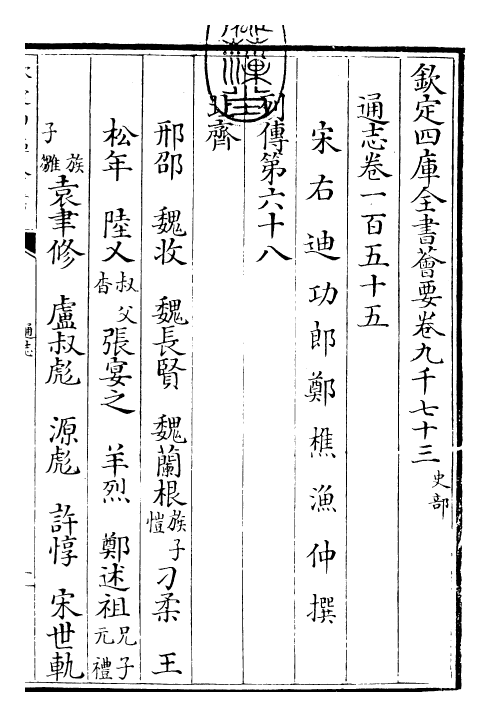 欽定四庫全書薈要卷九千七十三 史部
通志卷一百五十五
宋右迪功郎鄭樵漁仲撰
列傳第六十八
北齊
邢邵 魏收 魏長賢 魏蘭根 族子愷 刁柔 王
松年 陸乂 叔父杳 張宴之 羊烈 鄭述祖 兄子元禮
族子雛 袁聿修 盧叔彪 源彪 許惇 宋世軌
通志